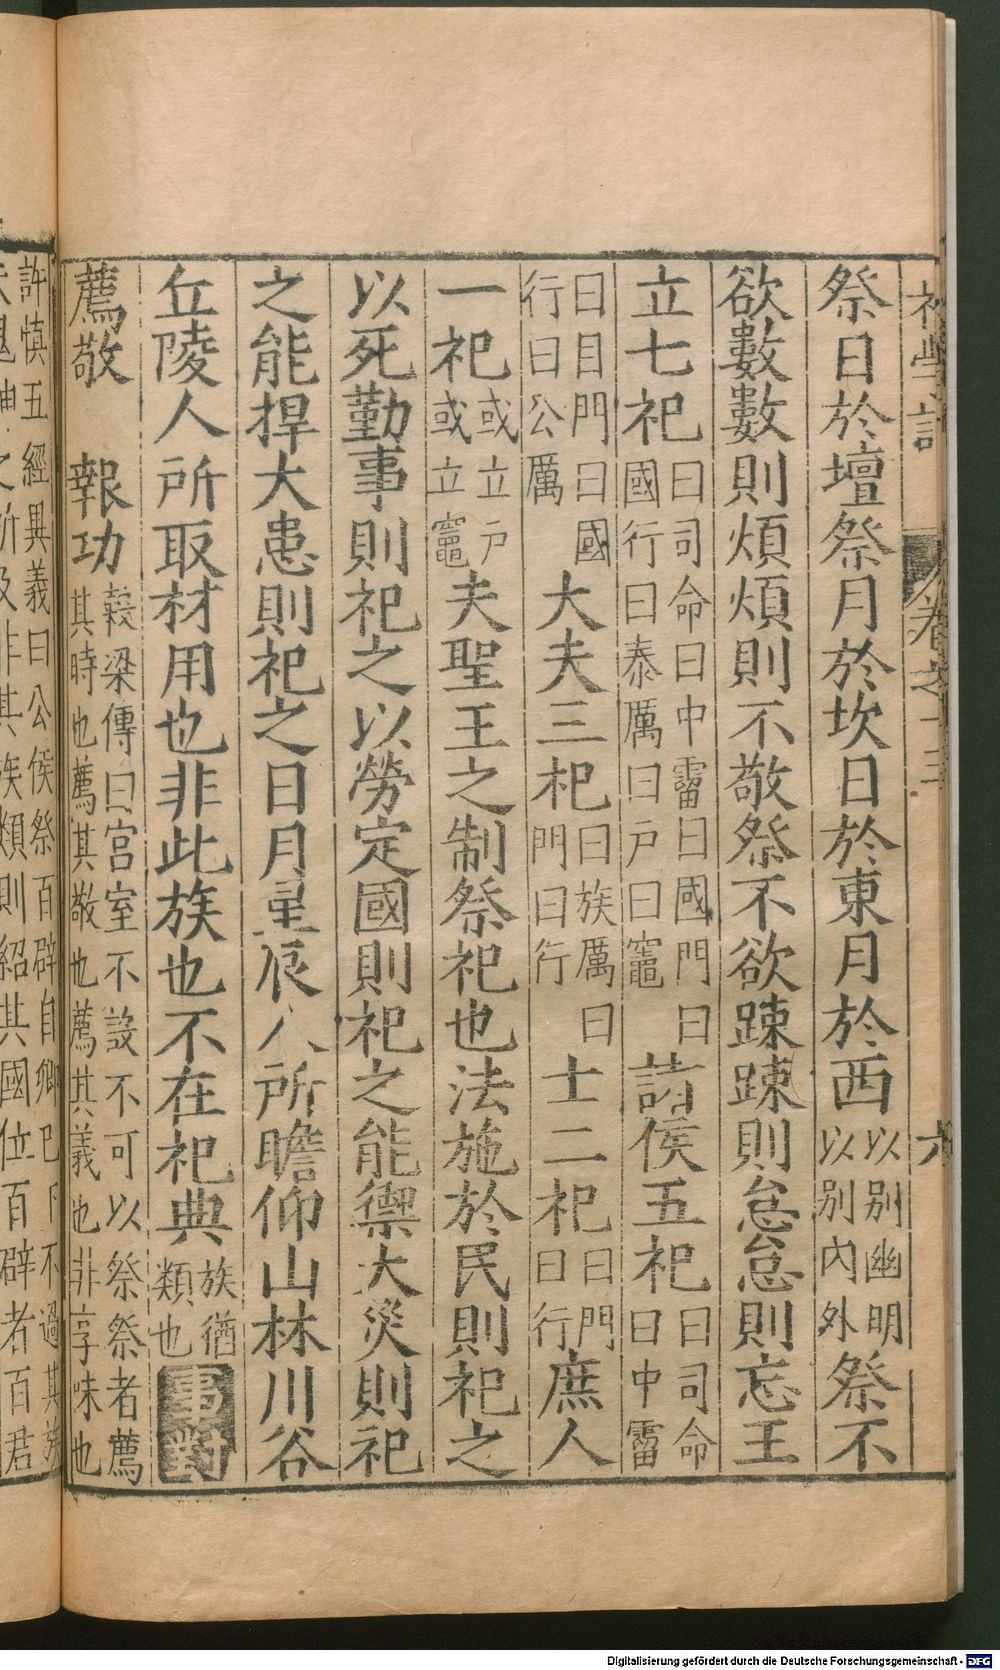 初學記 卷之十三 六
祭日於壇祭月於坎日於東月於西以別幽明以別內外祭不
欲數數則煩煩則不敬祭不欲踈踈則怠怠則忘王
立七祀曰司命曰中霤曰國門曰國行曰泰厲曰戶曰竈諸侯五祀曰司命曰中霤
曰目門曰國行曰公厲大夫三祀曰族厲曰門曰行士二祀曰門曰行庶人
一祀或立戶或立竈夫聖王之制祭祀也法施於民則祀之
以死勤事則祀之以勞定國則祀之能禦大災則祀
之能捍大患則祀之日月星辰人所瞻仰山林川谷
丘陵人所取材用也非此族也不在祀典族猶類也事對
薦敬 報功穀梁傳曰宮室不設不可以祭祭者薦其時也薦其敬也薦其義也非享味也
許慎五經異義曰公侯祭百辟自卿已下不過其族
之所及非其族類則紹其國位百辟者百君
Digitalisierung gefördert durch die Deutsche Forschungsgemeinschaft - DFG